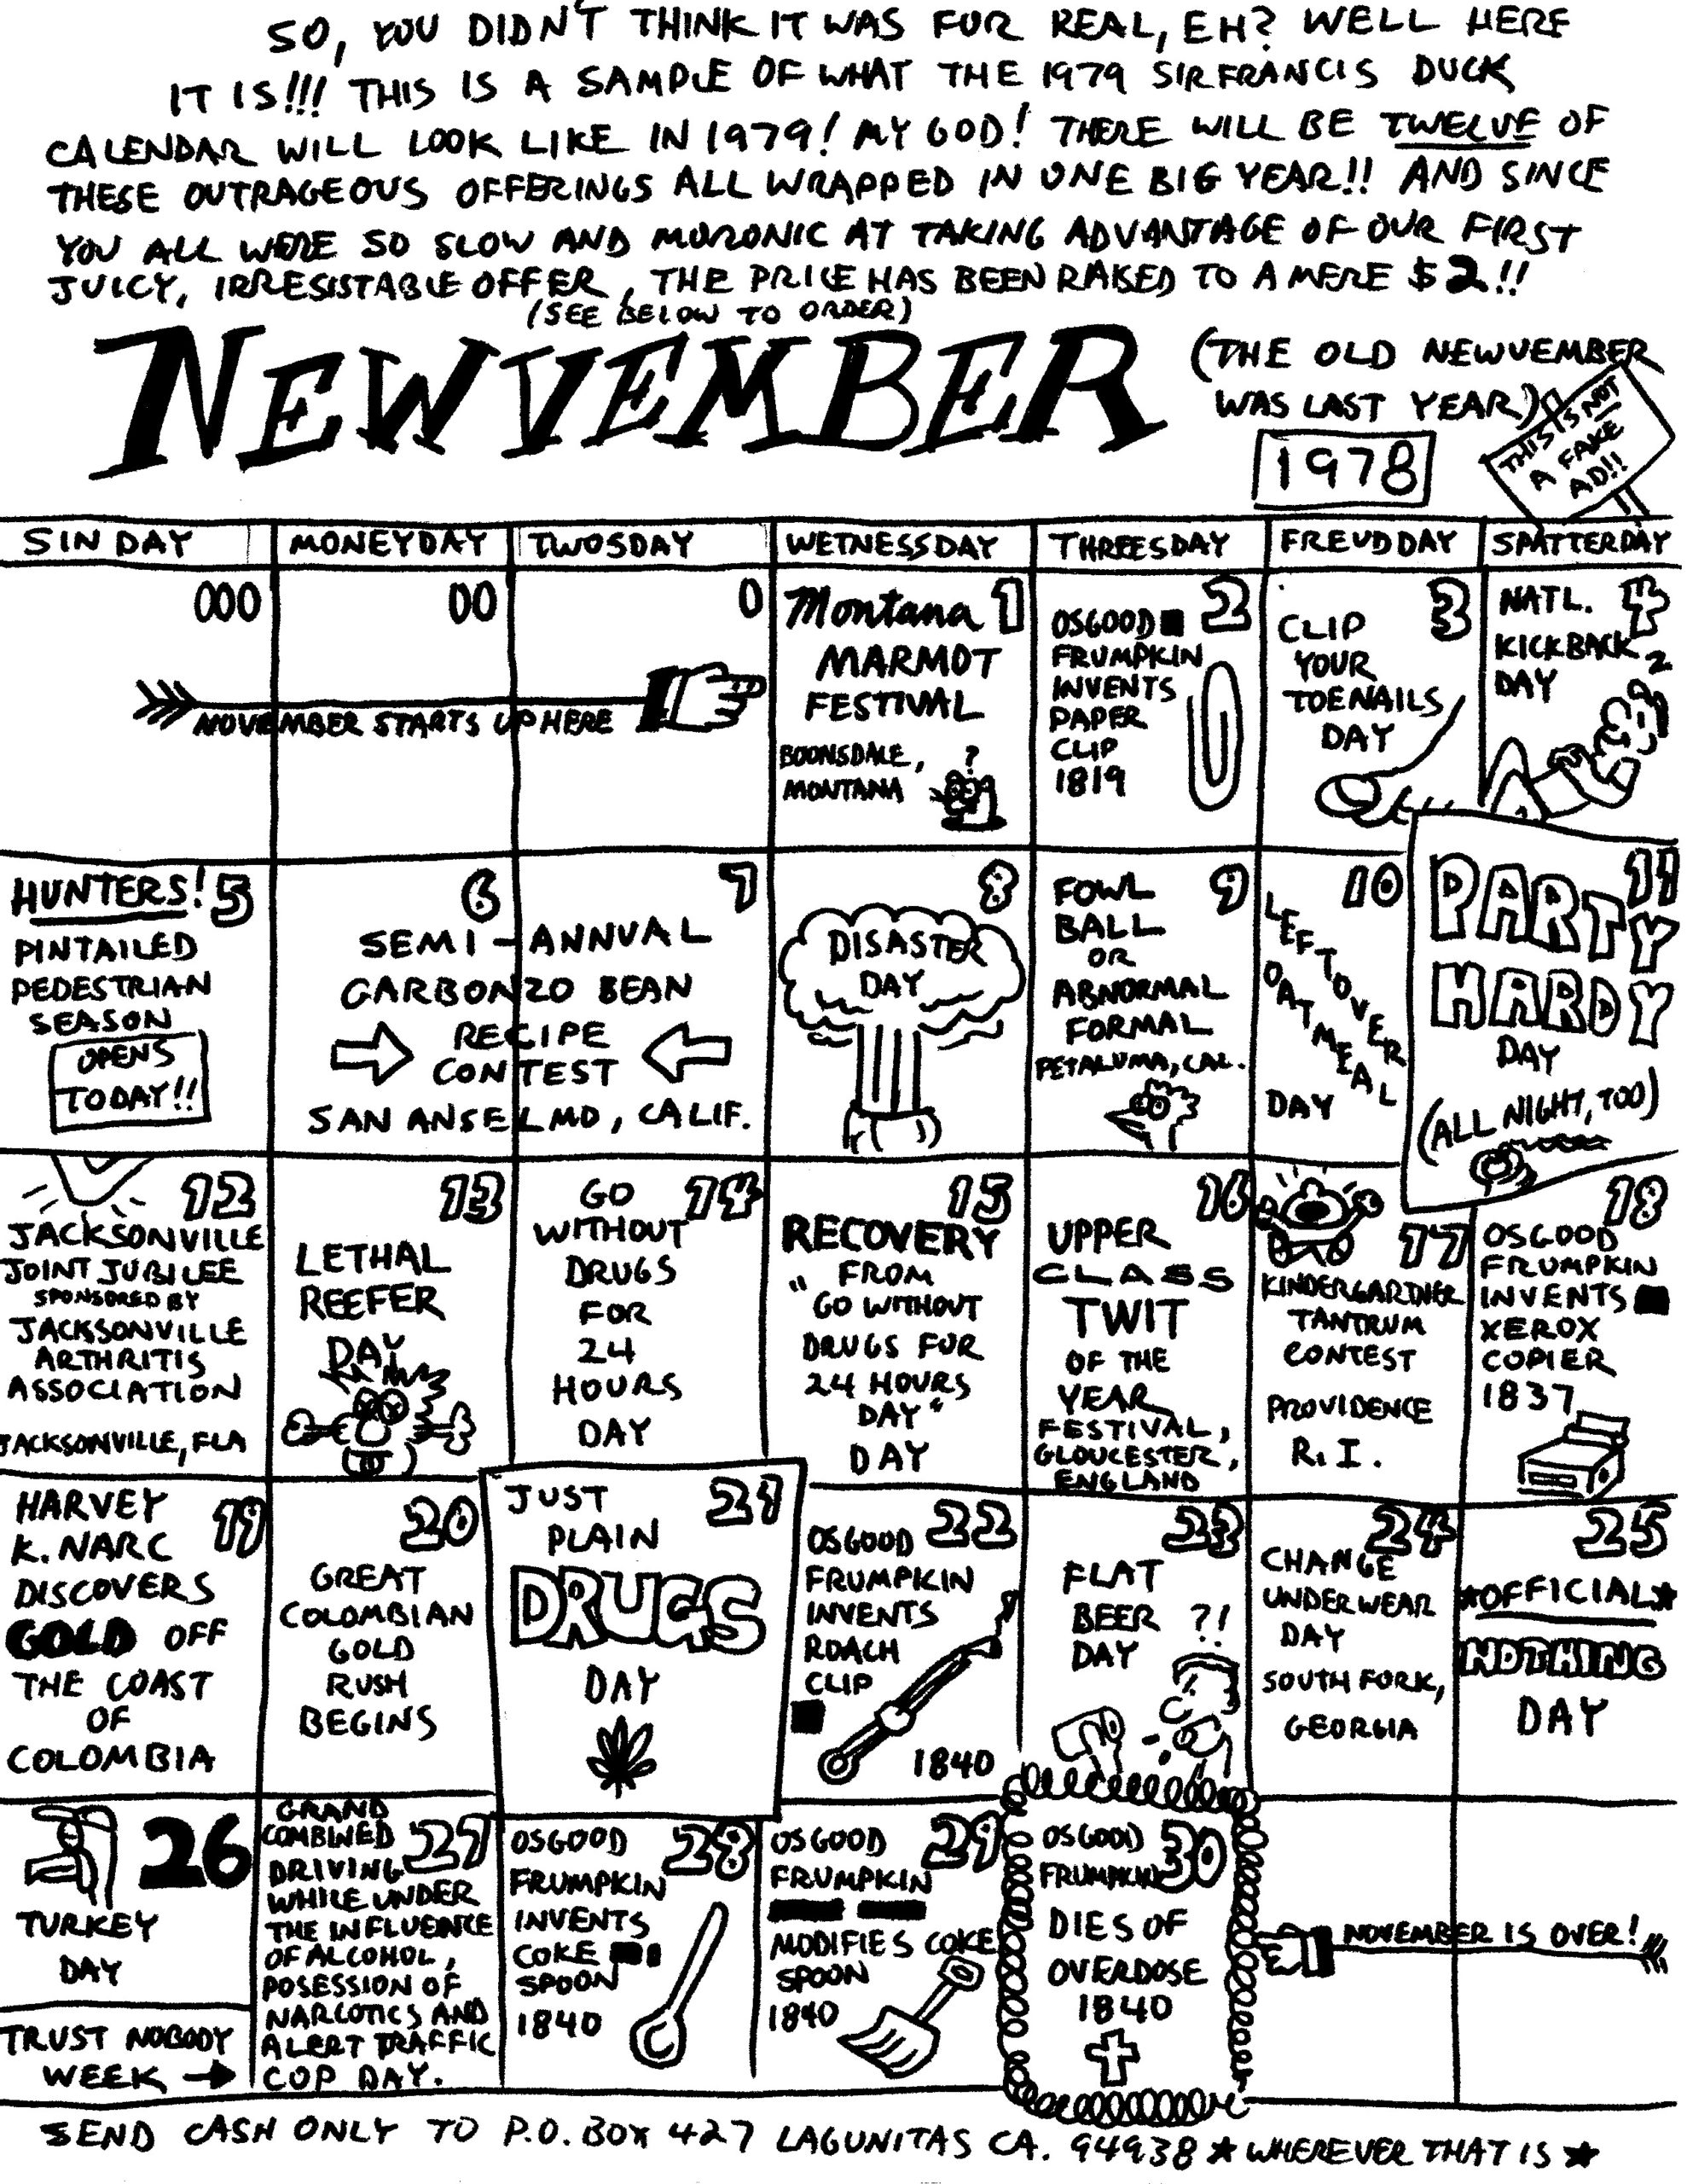 SO, YOU DIDN'T THINK IT WAS FUR REAL, EH? WELL HERE
IT IS!!! THIS IS A SAMPLE OF WHAT THE 1979 SIR FRANCIS DUCK
CALENDAR WILL LOOK LIKE IN 1979! MY GOD! THERE WILL BE TWELVE OF
THESE OUTRAGEOUS OFFERINGS ALL WRAPPED IN ONE BIG YEAR!! AND SINCE
YOU ALL WERE SO SLOW AND MORONIC AT TAKING ADVANTAGE OF OUR FIRST
JUICY, IRRESISTABLE OFFER, THE PRICE HAS BEEN RAISED TO A MERE $2!!
(SEE BELOW TO ORDER)
NEWVEMBER
(THE OLD NEWVEMBER
WAS LAST YEAR)
1978
THIS IS NOT
A FAKE
AD!!
SINDAY MONEYDAY TWOSDAY WETNESSDAY THREESDAY FREUDDAY SPATTERDAY
000
00
0
NOVEMBER STARTS UP HERE
1
Montana
MARMOT
FESTIVAL
BOONSDALE,
MONTANA
?
2
OSGOOD
FRUMPKIN
INVENTS
PAPER
CLIP
1819
3
CLIP
YOUR
TOENAILS
DAY
4
NATL.
KICKBACK
DAY
z
HUNTERS! 5
PINTAILED
PEDESTRIAN
SEASON
OPENS
TODAY!!
6 7
SEMI-ANNUAL
GARBONZO BEAN
RECIPE
CONTEST
SAN ANSELMO, CALIF.
8
DISASTER
DAY
9
FOWL
BALL
OR
ABNORMAL
FORMAL
PETALUMA, CAL.
10
LEFTOVER
OATMEAL
DAY
11
PARTY
HARDY
DAY
(ALL NIGHT, TOO)
12
JACKSONVILLE
JOINT JUBILEE
SPONSORED BY
JACKSONVILLE
ARTHRITIS
ASSOCIATION
JACKSONVILLE, FLA
13
LETHAL
REEFER
DAY
14
GO
WITHOUT
DRUGS
FOR
24
HOURS
DAY
15
RECOVERY
FROM
"GO WITHOUT
DRUGS FUR
24 HOURS
DAY"
DAY
16
UPPER
CLASS
TWIT
OF THE
YEAR
FESTIVAL,
GLOUCESTER,
ENGLAND
17
KINDERGARTNER
TANTRUM
CONTEST
PROVIDENCE
R.I.
18
OSGOOD
FRUMPKIN
INVENTS
XEROX
COPIER
1837
19
HARVEY
K. NARC
DISCOVERS
GOLD OFF
THE COAST
OF
COLOMBIA
20
GREAT
COLOMBIAN
GOLD
RUSH
BEGINS
21
JUST
PLAIN
DRUGS
DAY
22
OSGOOD
FRUMPKIN
INVENTS
ROACH
CLIP
1840
23
FLAT
BEER
DAY
?!
24
CHANGE
UNDERWEAR
DAY
SOUTH FORK,
GEORGIA
25
★OFFICIAL★
NOTHING
DAY
26
TURKEY
DAY
TRUST NOBODY
WEEK →
27
GRAND
COMBINED
DRIVING
WHILE UNDER
THE INFLUENCE
OF ALCOHOL,
POSESSION OF
NARCOTICS AND
ALERT TRAFFIC
COP DAY.
28
OSGOOD
FRUMPKIN
INVENTS
COKE
SPOON
1840
29
OSGOOD
FRUMPKIN
MODIFIES COKE
SPOON
1840
30
OSGOOD
FRUMPKIN
DIES OF
OVERDOSE
1840
NOVEMBER IS OVER!
SEND CASH ONLY TO P.O. BOX 427 LAGUNITAS CA. 94938 ★ WHEREVER THAT IS ★